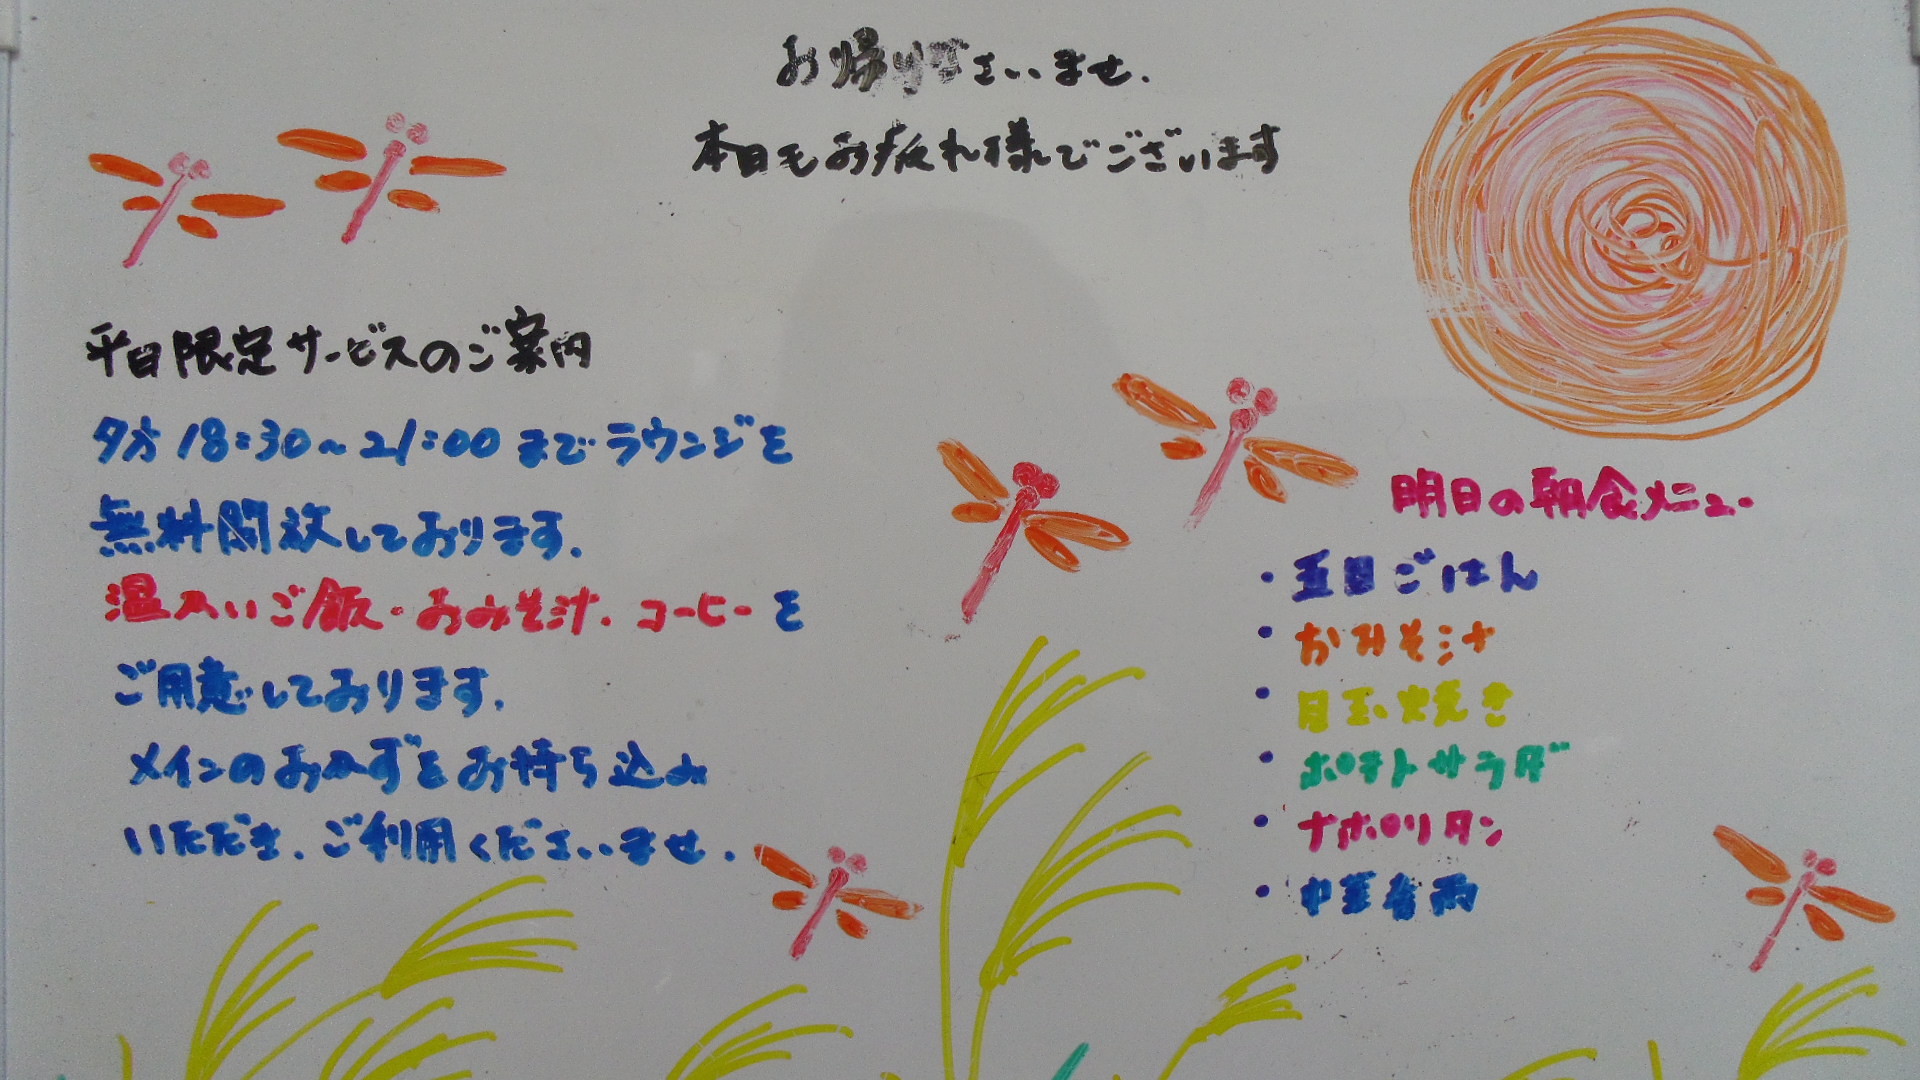 お帰りなさいませ.
本日もお疲れ様でございます
平日限定サービスのご案内
夕方18:30~21:00までラウンジを
無料開放しております.
温かいご飯・おみそ汁.コーヒーを
ご用意しております.
メインのおかずをお持ち込み
いただき.ご利用くださいませ.
明日の朝食メニュー
・五目ごはん
・おみそ汁
・目玉焼き
・ポテトサラダ
・ナポリタン